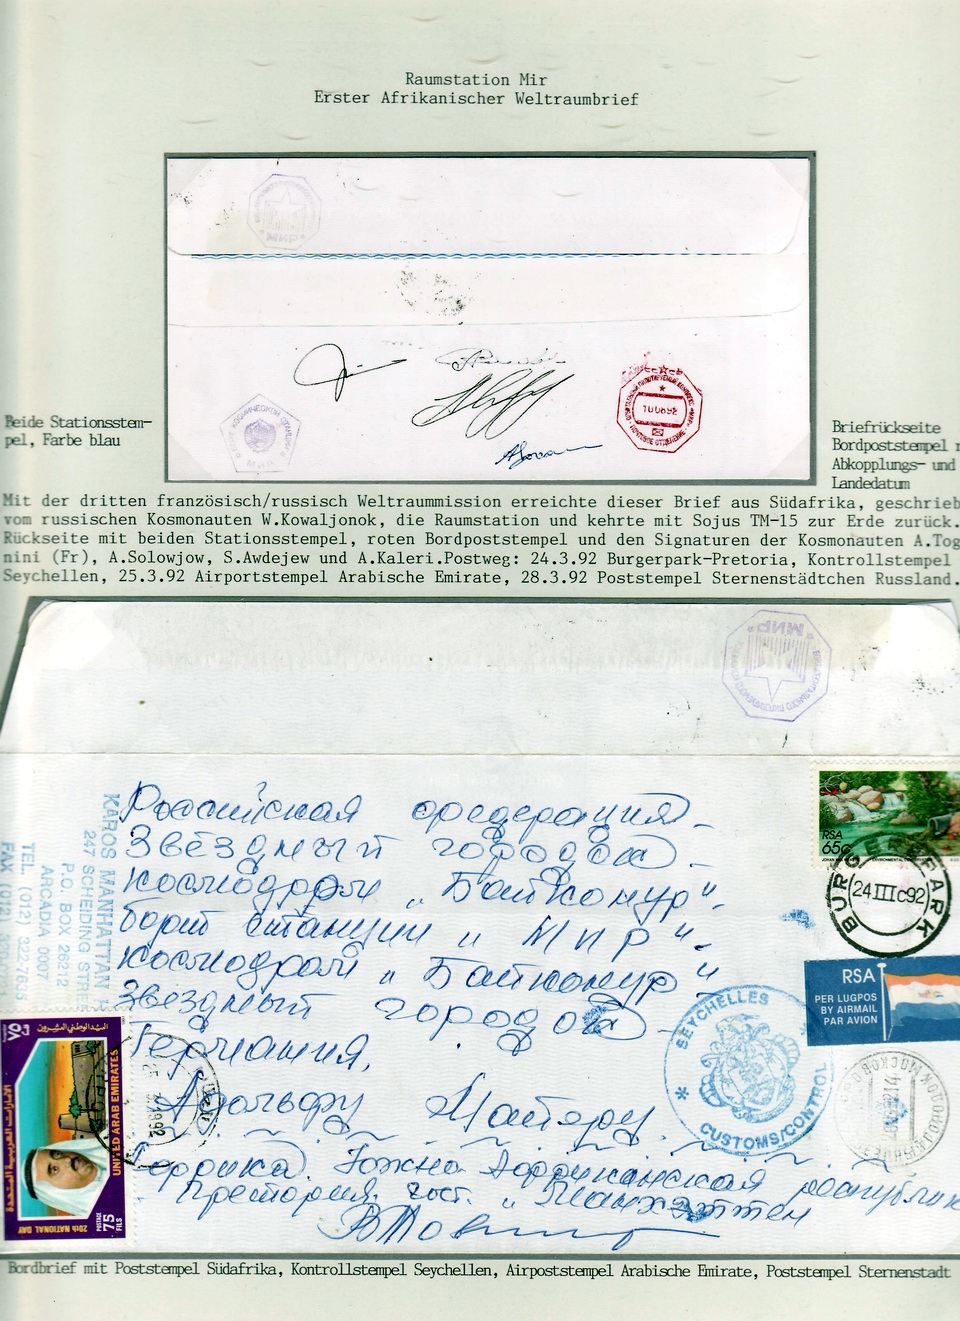 Raumstation Mir
Erster Afrikanischer Weltraumbrief
МИР
Beide Stationsstem-
pel, Farbe blau
КОСМИЧЕСКОЙ СТАНЦИИ
МИР
10 06 92
ПОЧТОВОЕ ОТДЕЛЕНИЕ
Briefrückseite
Bordpoststempel
Abkopplungs- und
Landedatum
Mit der dritten französisch/russisch Weltraummission erreichte dieser Brief aus Südafrika, geschrieb
vom russischen Kosmonauten W.Kowaljonok, die Raumstation und kehrte mit Sojus TM-15 zur Erde zurück.
Rückseite mit beiden Stationsstempel, roten Bordpoststempel und den Signaturen der Kosmonauten A.Tog
nini (Fr), A.Solowjow, S.Awdejew und A.Kaleri.Postweg: 24.3.92 Burgerpark-Pretoria, Kontrollstempel
Seychellen, 25.3.92 Airportstempel Arabische Emirate, 28.3.92 Poststempel Sternenstädtchen Russland.
МИР
Российская федерация
Звёздный городок
космодром „Байконур"
борт станции „Мир".
космодром „Байконур"
Звездный городок
Германия,
Адольфу
Африка. Южно Африканская республик
Претория, гост. „Манхэттен
KAROS MANHATTAN
247 SCHEIDING STREE
P.O. BOX 26212
ARCADIA 0007
TEL. (012) 322-7635
FAX (012)
RSA
65c
BURGERSPARK
24 III 92
RSA
PER LUGPOS
BY AIRMAIL
PAR AVION
SEYCHELLES
CUSTOMS/CONTROL
الامارات العربية المتحدة
UNITED ARAB EMIRATES
20th NATIONAL DAY
POSTAGE
75
FILS
Bordbrief mit Poststempel Südafrika, Kontrollstempel Seychellen, Airpoststempel Arabische Emirate, Poststempel Sternenstadt